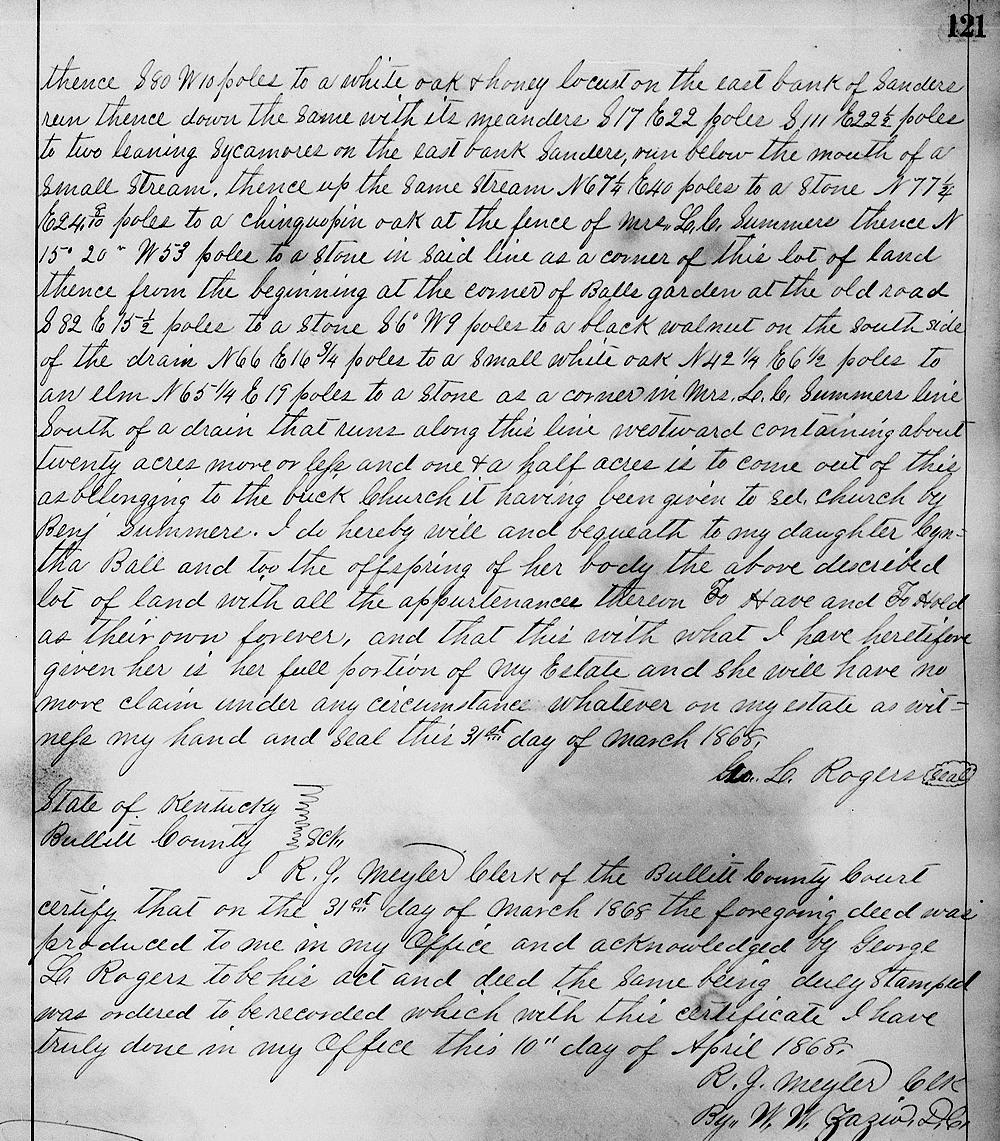 121
thence S80 W10 poles to a white oak & honey locust on the east bank of Sanders
run thence down the same with its meanders S17 E22 poles S111 E22½ poles
to two leaning Sycamores on the east bank Sanders, run below the mouth of a
Small Stream. thence up the same stream N67¼ E40 poles to a Stone N77¼
E24 8/10 poles to a chinquopin oak at the fence of Mrs. L.C. Summers thence N
15° 20" W53 poles to a Stone in said line as a corner of this lot of land
thence from the beginning at the corner of Balls garden at the old road
S82 E15½ poles to a Stone S6° W9 poles to a black walnut on the south side
of the drain N66 E16¾ poles to a small white oak N42¼ E6½ poles to
an elm N65¼ E19 poles to a Stone as a corner in Mrs. L.C. Summers line
South of a drain that runs along this line westward containing about
twenty acres more or less and one & a half acres is to come out of this
as belonging to the brick Church it having been given to sd. church by
Benj Summers. I do hereby will and bequeath to my daughter Cyn=
tha Ball and too the offspring of her body the above described
lot of land with all the appurtenances thereon To Have and To Hold
as their own forever, and that this with what I have heretifore
given her is her full portion of my Estate and she will have no
more claim under any circumstance whatever on my estate as wit=
ness my hand and seal this 31st day of March 1868.
Geo. L. Rogers Seal
State of Kentucky
Bullitt County Sct,
I R.J. Meyler Clerk of the Bullitt County Court
certify that on the 31st day of March 1868 the foregoing deed was
produced to me in my Office and acknowledged by George
L. Rogers to be his act and deed the same being duly Stamped
was ordered to be recorded which with this certificate I have
truly done in my Office this 10" day of April 1868.
R.J. Meyler Clk
By W. W. D.C.